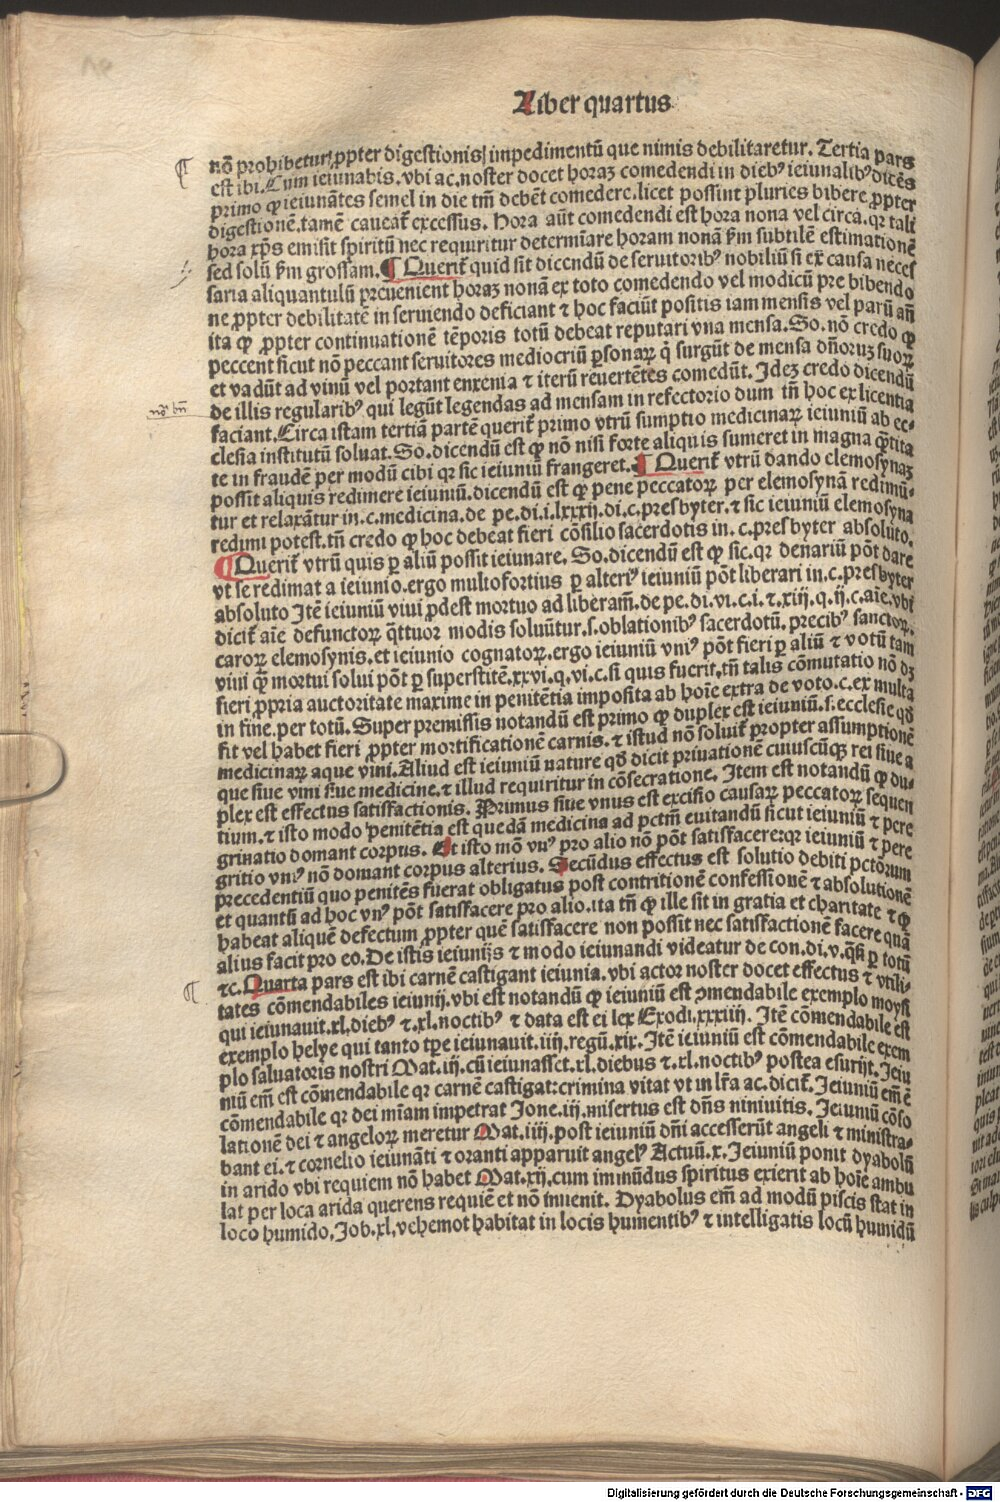 Liber quartus
nō prohibetur ꝓpter digestionis impedimentū que nimis debilitaretur. Tertia pars
est ibi. Cum ieiunabis. vbi ac. noster docet horaꝫ comedendi in dieb⁹ ieiunalib⁹ dicēs
primo ꝙ ieiunātes semel in die tm̄ debēt comedere. licet possint pluries bibere ꝓpter
digestionē. tamē caueat̄ excessus. Hora aūt comedendi est hora nona vel circa. qꝛ tali
hora xp̄s emisit spiritū nec requiritur determīare horam nonā ẜm subtilē estimationē
sed solū ẜm grossam. ¶ Querit̄ quid sit dicendū de seruitorib⁹ nobiliū si ex causa neces
saria aliquantulū preuenient horaꝫ nonā ex toto comedendo vel modicū pre bibendo
ne ꝓpter debilitatē in seruiendo deficiant ⁊ hoc faciūt positis iam mensis vel parū añ
ita ꝙ ꝓpter continuationē tēporis totū debeat reputari vna mensa. So. nō credo ꝙ
peccent sicut nō peccant seruitores mediocriū ꝑsonaꝝ q̇ surgūt de mensa dn̄oruꝫ suoꝝ
et vadūt ad vinū vel portant enxenia ⁊ iterū reuertētes comedūt. Ideꝫ credo dicendū
de illis regularib⁹ qui legūt legendas ad mensam in refectorio dum tn̄ hoc ex licentia
faciant. Circa istam tertiā partē querit̄ primo vtrū sumptio medicinaꝝ ieiuniū ab ec⸗
clesia institutū soluat. So. dicendū est ꝙ nō nisi forte aliquis sumeret in magna q̄tita
te in fraudē per modū cibi qꝛ sic ieiuniū frangeret. ¶ Querit̄ vtrū dando elemosynaꝫ
possit aliquis redimere ieiuniū. dicendū est ꝙ pene peccatoꝝ per elemosynā redimū⸗
tur et relaxātur in. c. medicina. de pe. di. i. lxxxij. di. c. presbyter. ⁊ sic ieiuniū elemosyna
redimi potest. tn̄ credo ꝙ hoc debeat fieri cōsilio sacerdotis in. c. presbyter absoluto.
¶ Querit̄ vtrū quis ꝑ aliū possit ieiunare. So. dicendū est ꝙ sic. qꝛ denariū pōt dare
vt se redimat a ieiunio. ergo multofortius ꝑ alteri⁹ ieiuniū pōt liberari in. c. presbyter
absoluto Itē ieiuniū viui ꝓdest mortuo ad liberam̄. de pe. di. vi. c. i. ⁊. xiij. q. ij. c. aīe. vbi
dicit̄ aīe defunctoꝝ q̄ttuor modis soluūtur. s. oblationib⁹ sacerdotū. precib⁹ sanctoꝝ.
caroꝝ elemosynis. et ieiunio cognatoꝝ. ergo ieiuniū vni⁹ pōt fieri ꝑ aliū ⁊ votū tam
viui q̄ꝫ mortui solui pōt ꝑ superstitē. xxvi. q. vi. c. si quis fuerit. tn̄ talis cōmutatio nō dꝫ
fieri ꝓpria auctoritate maxime in penitētia imposita ab hoīe extra de voto. c. ex multa
in fine. per totū. Super premissis notandū est primo ꝙ duplex est ieiuniū. s. ecclesie qd̄
fit vel habet fieri ꝓpter mortificationē carnis. ⁊ istud nō soluit̄ propter assumptionē
medicinaꝝ aque vini. Aliud est ieiuniū nature qd̄ dicit priuationē cuiuscūqꝫ rei siue a
que siue vini siue medicine. ⁊ illud requiritur in cōsecratione. Item est notandū ꝙ du⸗
plex est effectus satisfactionis. Primus siue vnus est excisio causaꝝ peccatoꝝ sequen
tium. ⁊ isto modo penitētia est quedā medicina ad pctm̄ euitandū sicut ieiuniū ⁊ pere
grinatio domant corpus. Et isto mō vn⁹ pro alio nō pōt satisfacere: qꝛ ieiuniū ⁊ pere
gritio vni⁹ nō domant corpus alterius. Secūdus effectus est solutio debiti pctōrum
precedentiū quo penitēs fuerat obligatus post contritionē confessionē ⁊ absolutionē
et quantū ad hoc vn⁹ pōt satisfacere pro alio. ita tn̄ ꝙ ille sit in gratia et charitate ⁊ ꝙ
habeat aliquē defectum ꝓpter quē satisfacere non possit nec satisfactionē facere quā
alius facit pro eo. De istis ieiunijs ⁊ modo ieiunandi videatur de con. di. v. q̄si ꝑ totū
⁊c. Quarta pars est ibi carnē castigant ieiunia. vbi actor noster docet effectus ⁊ vtili⸗
tates cōmendabiles ieiunij. vbi est notandū ꝙ ieiuniū est ꝯmendabile exemplo moysi
qui ieiunauit. xl. dieb⁹ ⁊. xl. noctib⁹ ⁊ data est ei lex Exodi. xxxiiij. Itē cōmendabile est
exemplo helye qui tanto tp̄e ieiunauit. iij. regū. xix. Itē ieiuniū est cōmendabile exem
plo saluatoris nostri Mat. iij. cū ieiunasset. xl. diebus ⁊. xl. noctib⁹ postea esurijt. Ieiu
niū em̄ est cōmendabile qꝛ carnē castigat: crimina vitat vt in lr̄a ac. dicit̄. Ieiuniū em̄ ē
cōmendabile qꝛ dei miam impetrat Ione. iij. misertus est dn̄s niniuitis. Ieiuniū cōso
lationē dei ⁊ angeloꝝ meretur Mat. iiij. post ieiuniū dn̄i accesserūt angeli ⁊ ministra⸗
bant ei. ⁊ cornelio ieiunāti ⁊ oranti apparuit angel⁹ Actuū. x. Ieiuniū ponit dyabolū
in arido vbi requiem nō habet Mat. xij. cum immūdus spiritus exierit ab hoīe ambu
lat per loca arida querens requiē et nō inuenit. Dyabolus em̄ ad modū piscis stat in
loco humido. Job. xl. vehemot habitat in locis humentib⁹ ⁊ intelligatis locū humidū
Digitalisierung gefördert durch die Deutsche Forschungsgemeinschaft - DFG